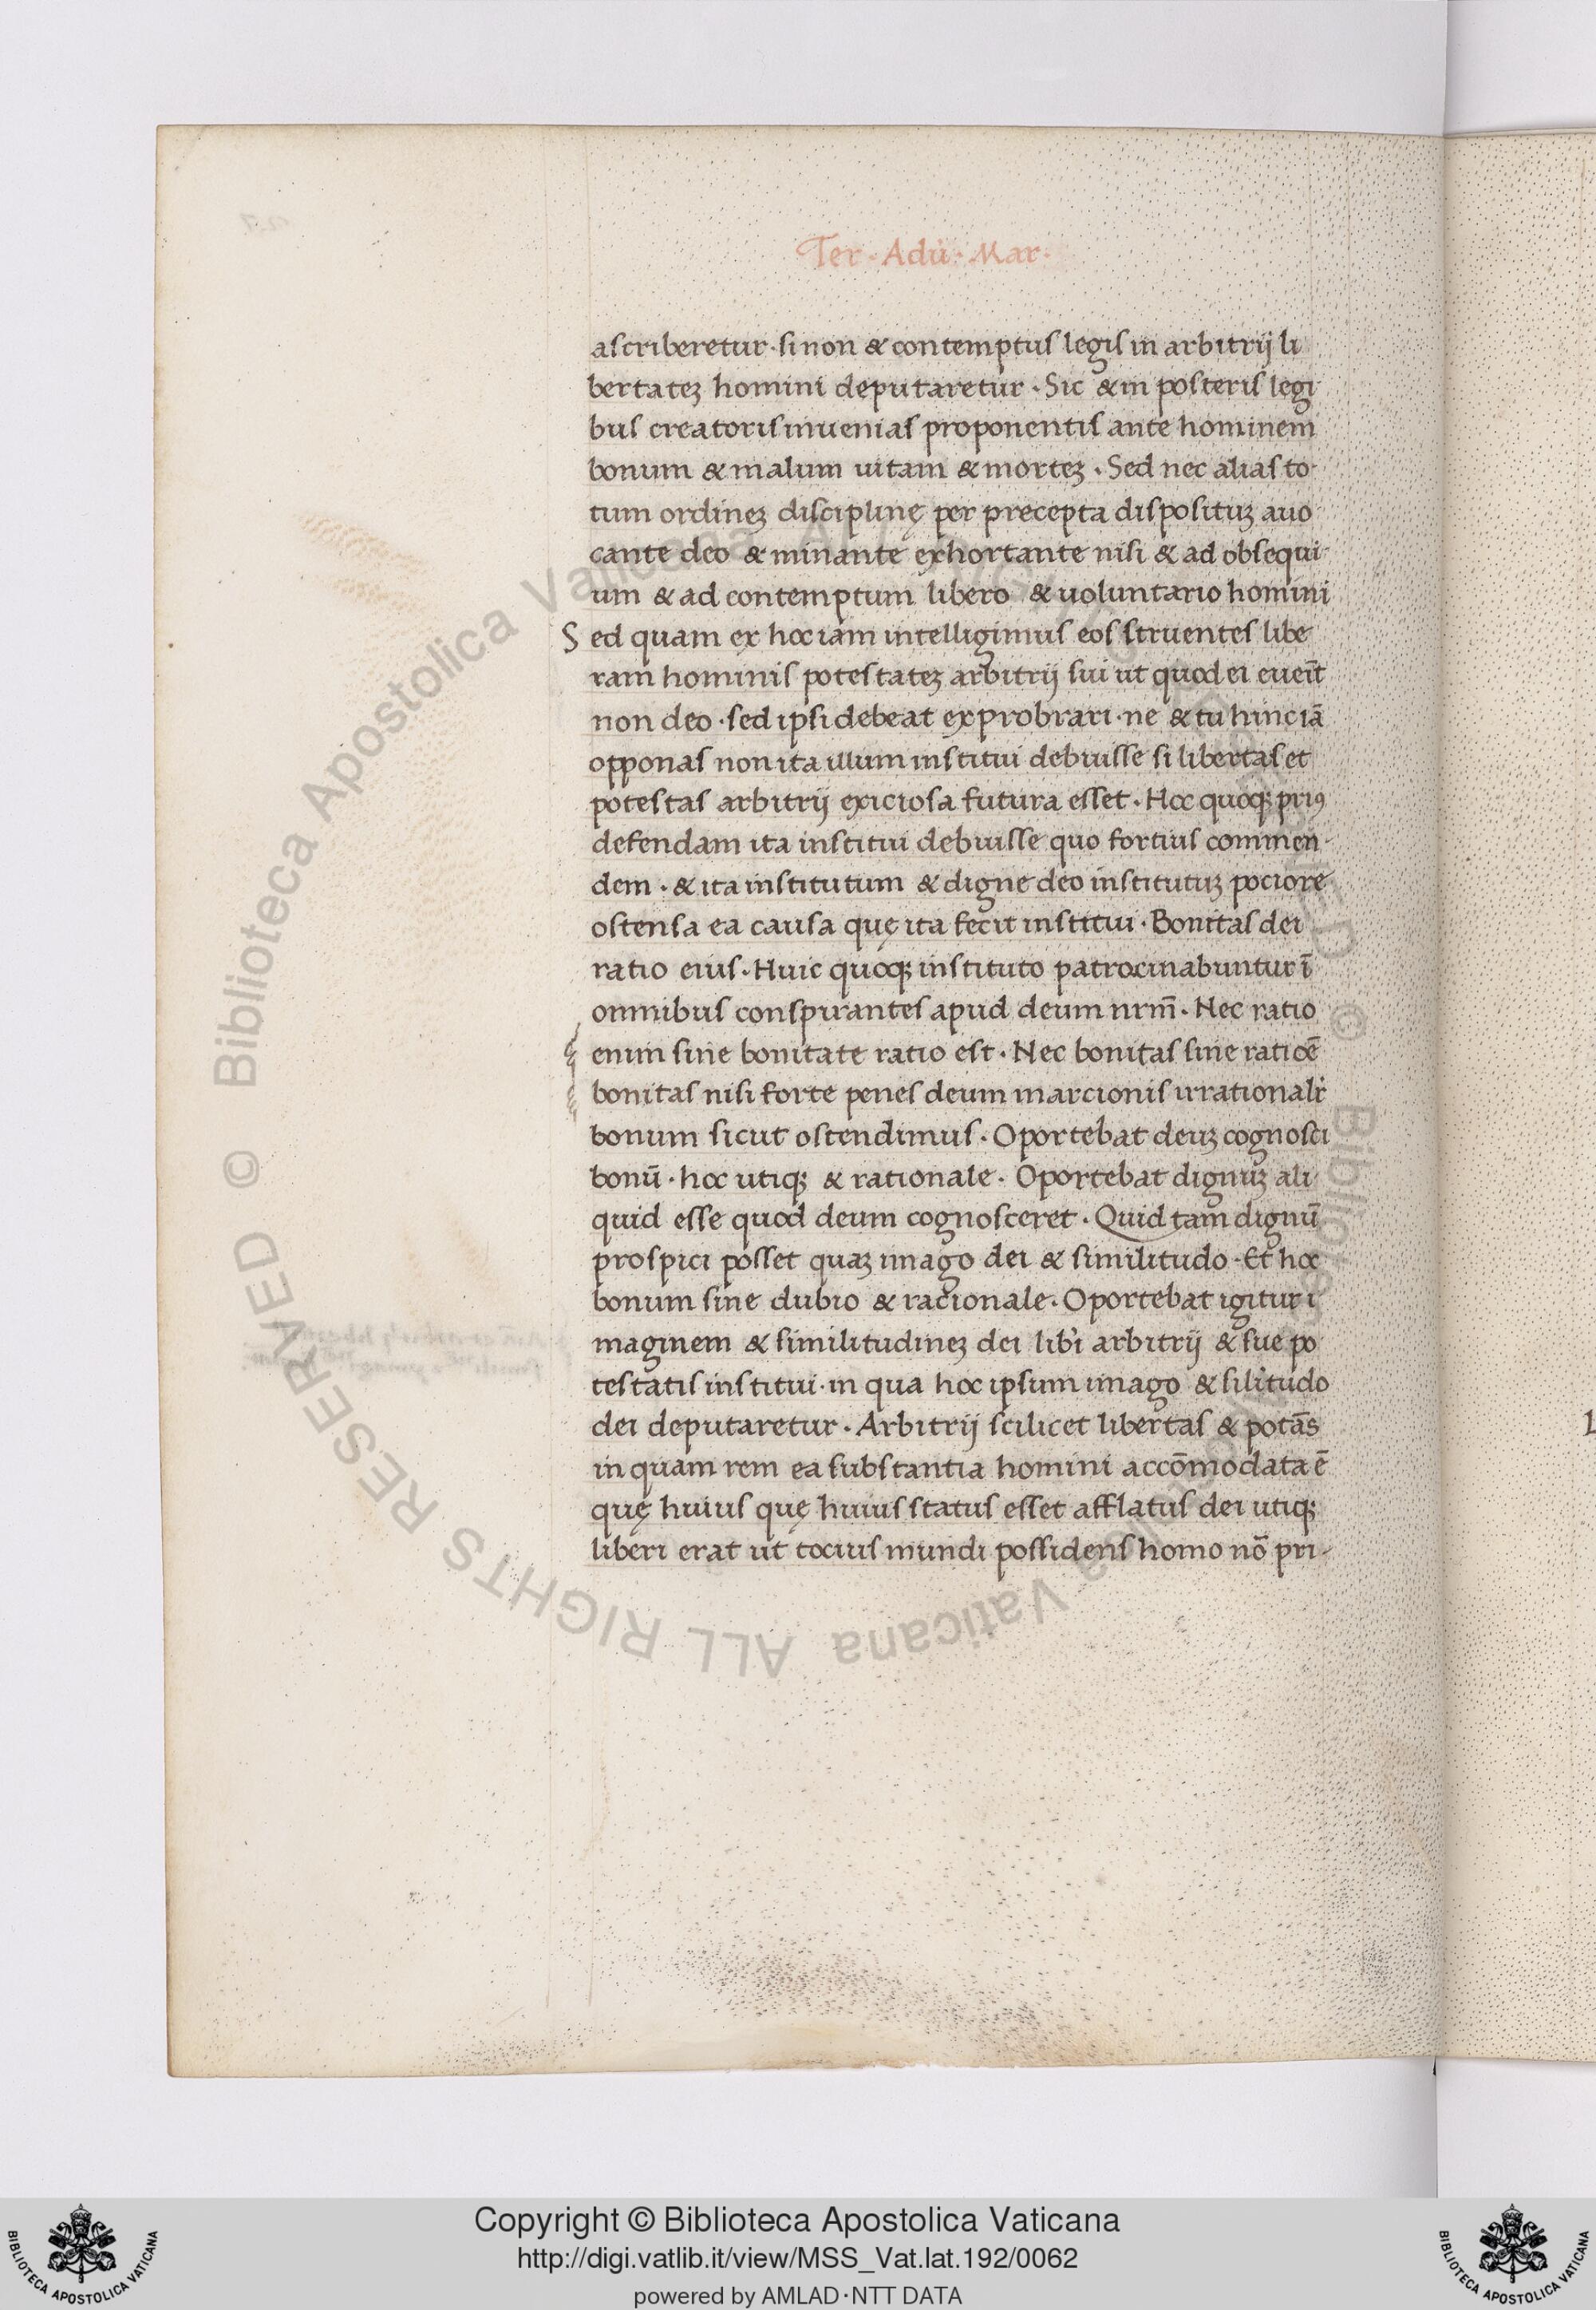 Ter · Adu · Mar ·
ascriberetur · si non & contemptus legis in arbitrij li
bertateʒ homini deputaretur · Sic & in posteris legi
bus creatoris inuenias proponentis ante hominem
bonum & malum uitam & morteʒ · Sed nec alias to-
tum ordineʒ disciplinę per precepta disposituʒ auo
cante deo & minante exhortante nisi & ad obsequi
um & ad contemptum libero & uoluntario homini
Sed quam ex hoc iam intelligimus eos struentes libe
ram hominis potestateʒ arbitrij sui ut quod ei eueīt
non deo · sed ipsi debeat exprobrari · ne & tu hinc iā
opponas non ita illum institui debuisse si libertas et
potestas arbitrij exiciosa futura esset · Hoc quoqꝫ priꝰ
defendam ita institui debuisse quo fortius commen-
dem · & ita institutum & digne deo institutuʒ pociore
ostensa ea causa quę ita fecit institui · Bonitas dei
ratio eius · Huic quoqꝫ instituto patrocinabuntur ī
omnibus conspirantes apud deum nrm̄ · Nec ratio
enim sine bonitate ratio est · Nec bonitas sine ratioē
bonitas nisi forte penes deum marcionis irrationalr̓
bonum sicut ostendimus · Oportebat deuʒ cognosci
bonū · hoc utiqꝫ & rationale · Oportebat dignuʒ ali
quid esse quod deum cognosceret · Quid tam dignū
prospici posset quaʒ imago dei & similitudo · Et hoc
bonum sine dubio & racionale · Oportebat igitur i
maginem & similitudineʒ dei lib̓i arbitrij & sue po
testatis institui · in qua hoc ipsum imago & sil̓itudo
dei deputaretur · Arbitrij scilicet libertas & potās
in quam rem ea substantia homini accōmodata ē
quę huius quę huius status esset afflatus dei utiqꝫ
liberi erat ut tocius mundi possidens homo nō pri-
© Biblioteca Apostolica Vaticana ALL RIGHTS RESERVED
© Biblioteca Apostolica Vaticana ALL RIGHTS RESERVED
Copyright © Biblioteca Apostolica Vaticana
http://digi.vatlib.it/view/MSS_Vat.lat.192/0062
powered by AMLAD·NTT DATA
BIBLIOTECA APOSTOLICA VATICANA
BIBLIOTECA APOSTOLICA VATICANA